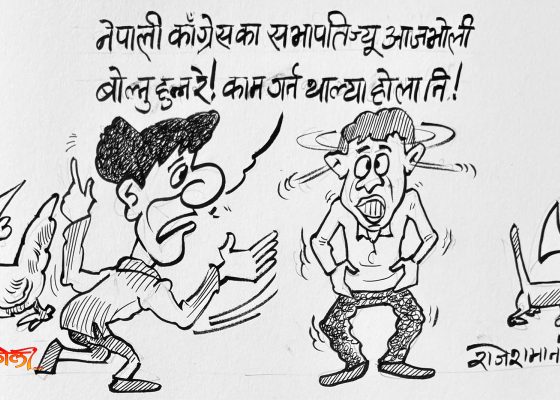 नेपाली काँग्रेसका सभापतिज्यू आजभोली
बोल्नु हुन्न रे! काम गर्न थाल्या होला नि!
राजेशमान